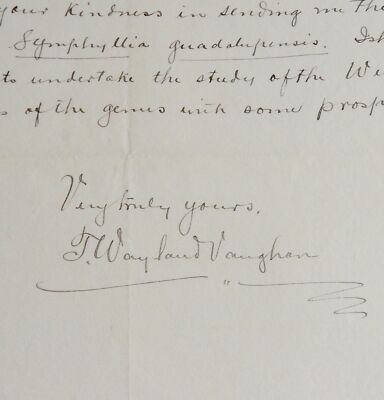 your kindness in sending me the
Symphyllia guadalupensis. I sh
to undertake the study of the We
s of the genus with some prosp
Very truly yours,
T. Wayland Vaughan
"